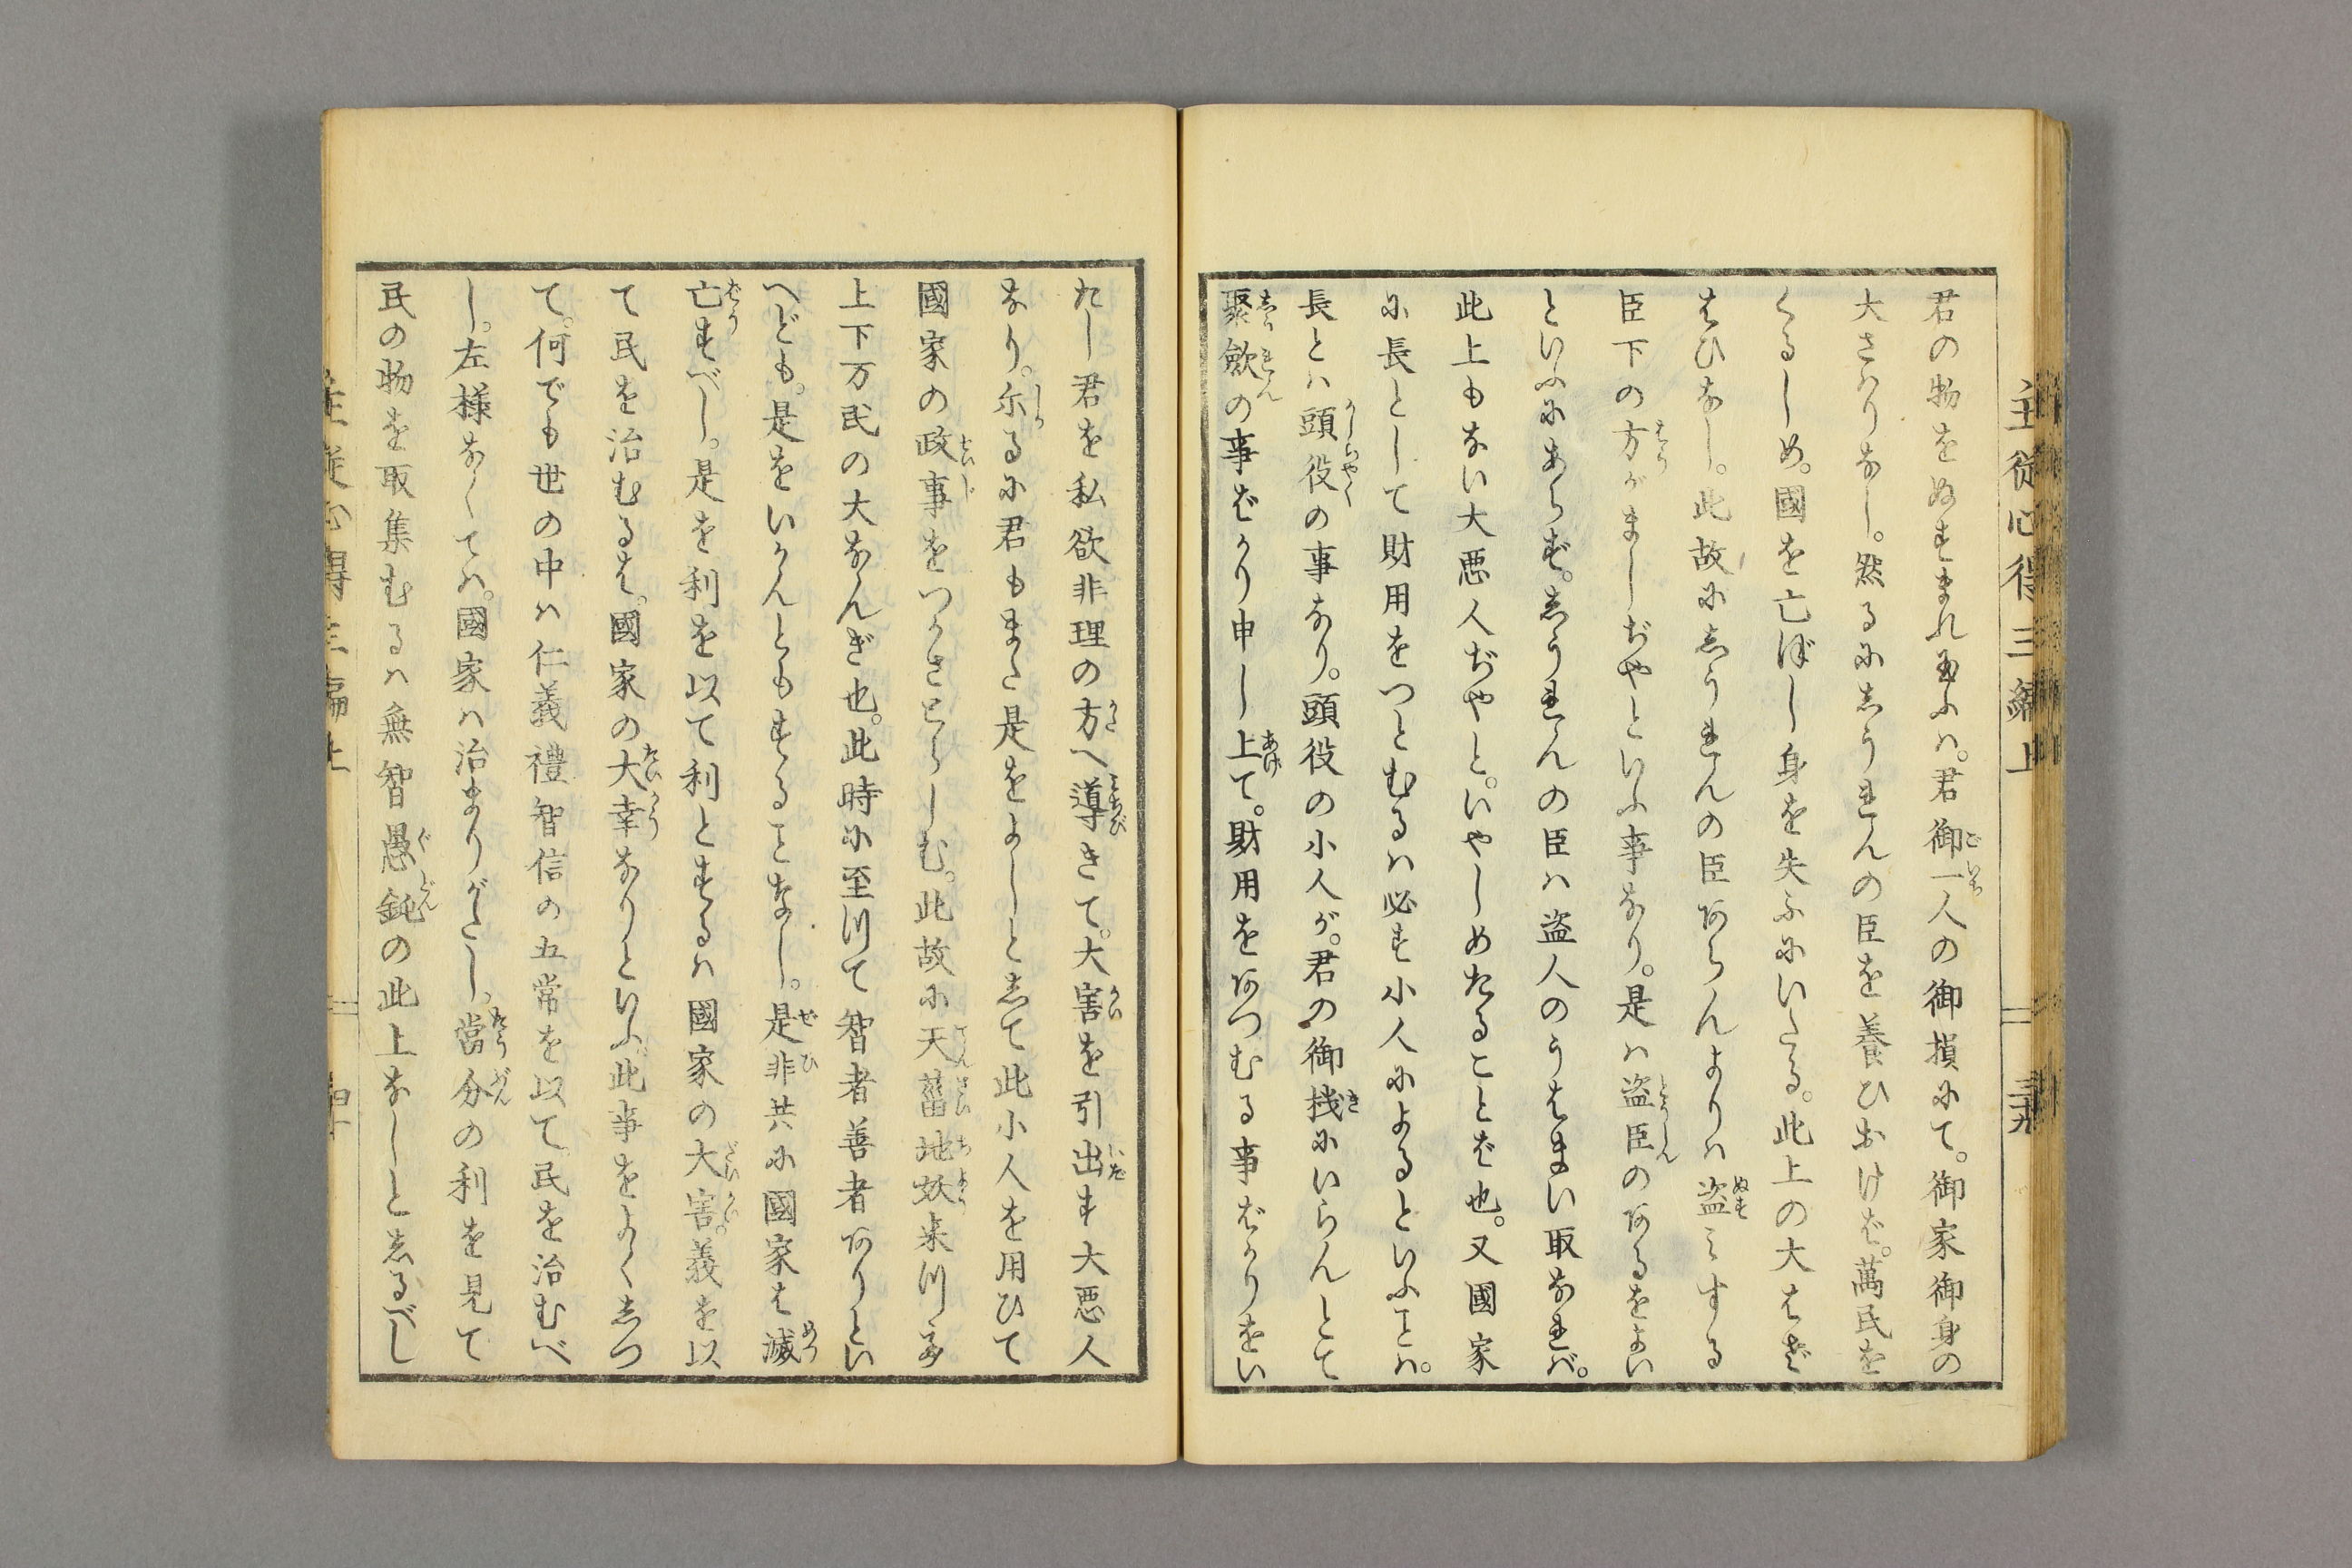 主従心得三編上
三十九
君の物をぬすまれ給ふハ。君御一人の御損にて。御家御身の
大さハりなし。然るにしうれんの臣を養ひおけば。萬民を
くるしめ。國を亡ぼし身を失ふにいたる。此上の大はざ
はひなし。此故にしうれんの臣あらんよりハ盗ミする
臣下の方がましぢやといふ事なり。是ハ盗臣のあるをよい
といふにあらず。しうれんの臣ハ盗人のうはまい取なれバ。
此上もない大悪人ぢやと。いやしめたることば也。又國家
に長として財用をつとむるハ必す小人によるといふヿハ。
長とハ頭役の事なり。頭役の小人が。君の御機にいらんとて
聚斂の事ばかり申し上て。財用をあつむる事ばかりをい
たし君を私欲非理の方へ導きて。大害を引出す大悪人
なり。尓るに君もまた是をよしとして此小人を用ひて
國家の政事をつかさどらしむ。此故に天菑地妖来りて
上下万民の大なんぎ也。此時に至りて智者善者ありとい
へども。是をいかんともするヿなし。是非共に國家は滅
亡すべし。是を利を以て利とするハ國家の大害。義を以
て民を治むるは。國家の大幸なりといふ。此事をよくしつ
て。何でも世の中ハ仁義禮智信の五常を以て。民を治むべ
し。左様なくてハ。國家ハ治まりがたし。當分の利を見て
民の物を取集むるハ無智愚鈍の此上なしとしるべし